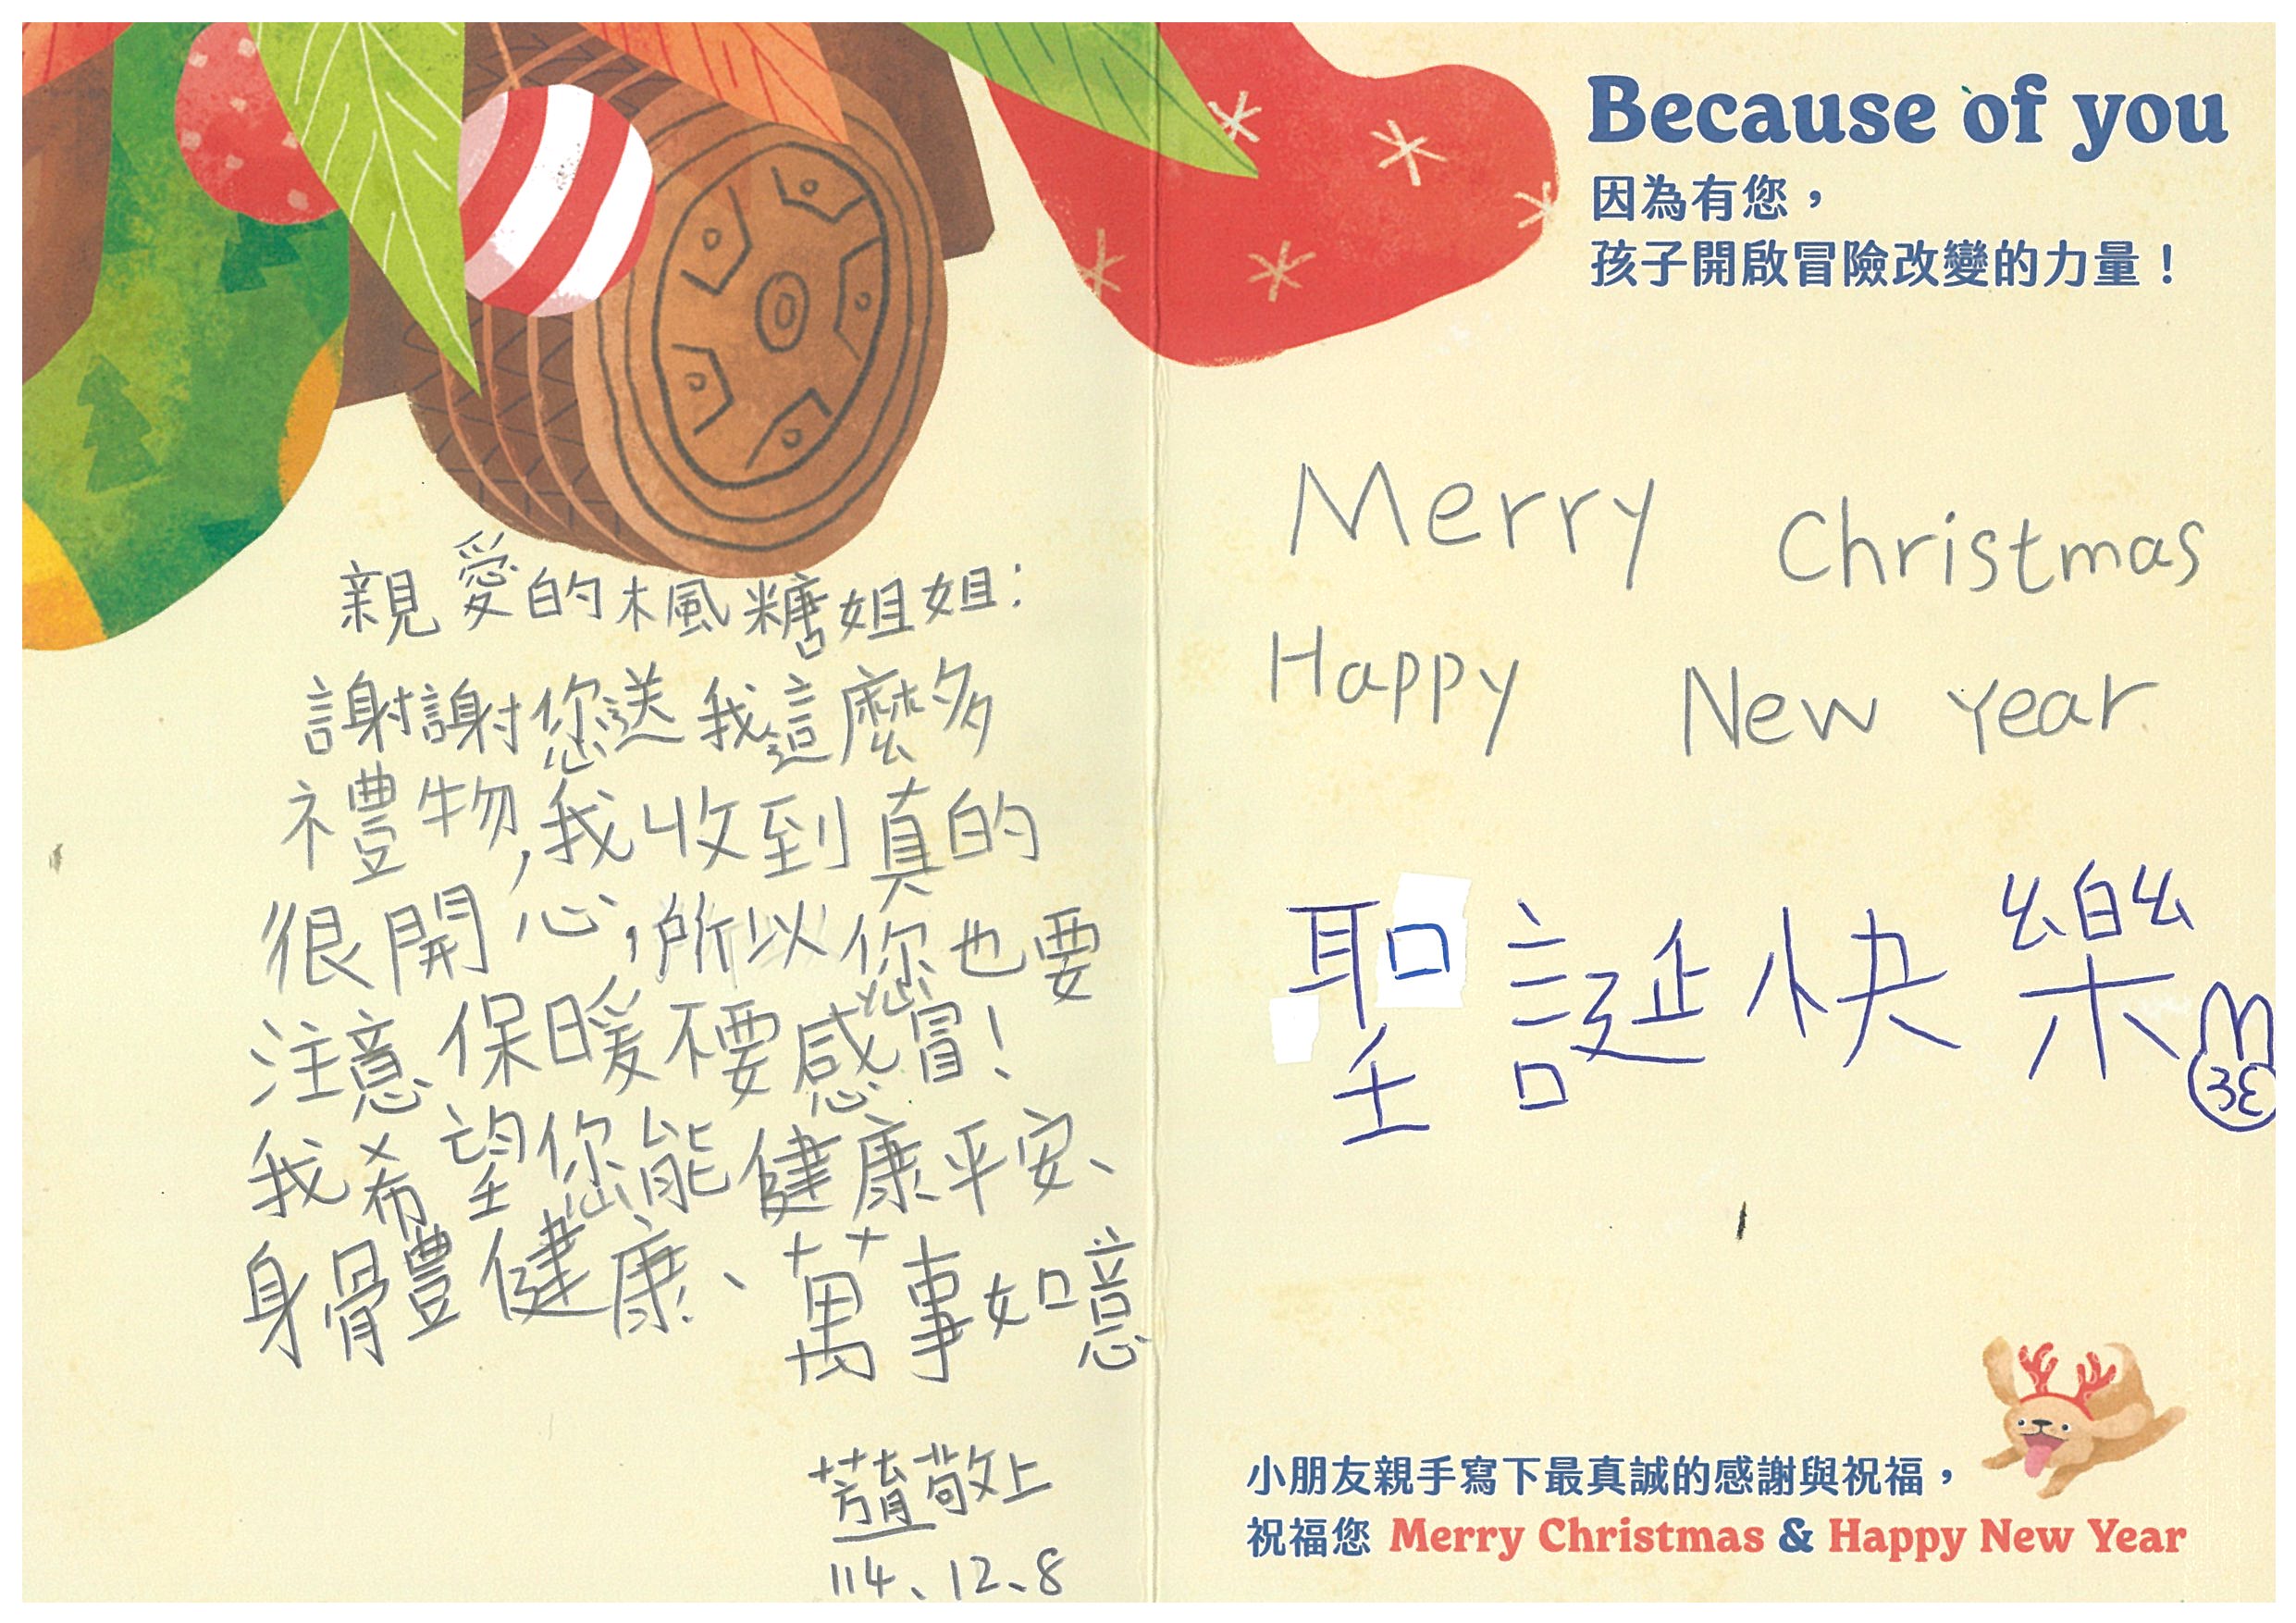 親愛的楓糖姐姐：
謝謝您送我這麼多
禮物,我收到真的
很開心,所以您也要
注意保暖不要感冒!
我希望您能健康平安、
身體健康、萬事如意
敬上
114、12、8
Because of you
因為有您，
孩子開啟冒險改變的力量！
Merry Christmas
Happy New Year
聖誕快樂
小朋友親手寫下最真誠的感謝與祝福，
祝福您 Merry Christmas & Happy New Year